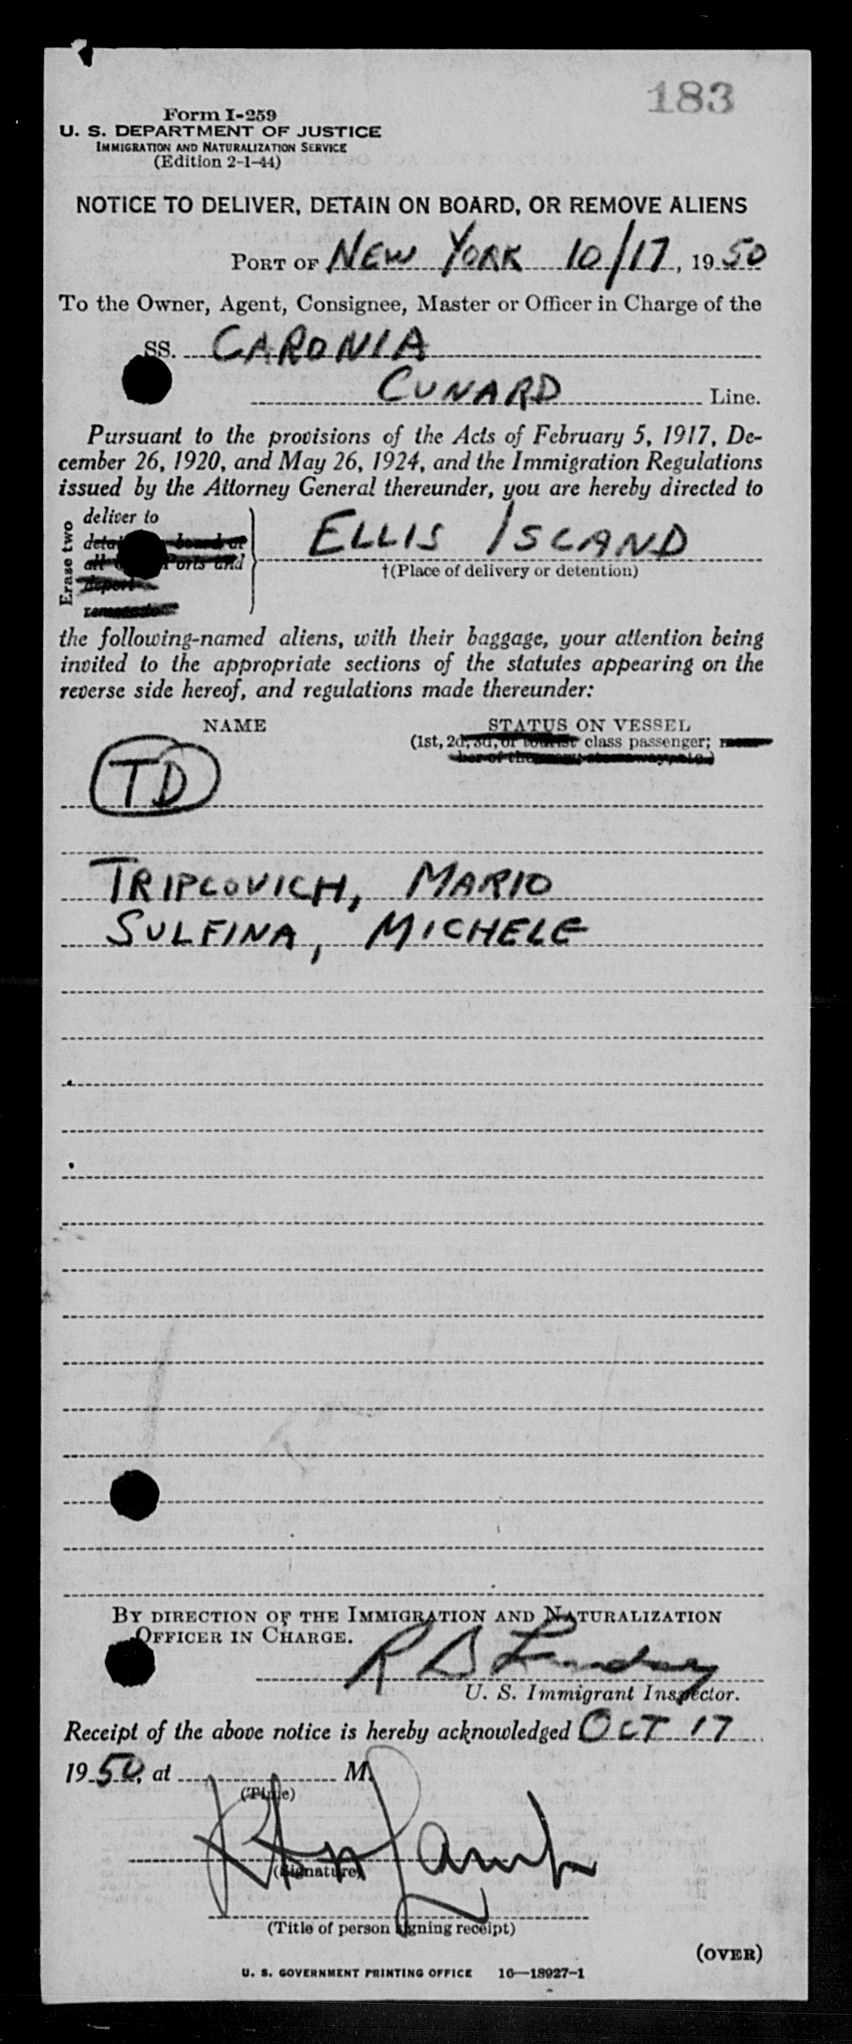 183
Form I-259
U. S. DEPARTMENT OF JUSTICE
IMMIGRATION AND NATURALIZATION SERVICE
(Edition 2-1-44)
NOTICE TO DELIVER, DETAIN ON BOARD, OR REMOVE ALIENS
PORT OF NEW YORK 10/17, 1950
To the Owner, Agent, Consignee, Master or Officer in Charge of the
SS. CARONIA
CUNARD Line.
Pursuant to the provisions of the Acts of February 5, 1917, De-
cember 26, 1920, and May 26, 1924, and the Immigration Regulations
issued by the Attorney General thereunder, you are hereby directed to
Erase two
deliver to
ELLIS ISLAND
†(Place of delivery or detention)
the following-named aliens, with their baggage, your attention being
invited to the appropriate sections of the statutes appearing on the
reverse side hereof, and regulations made thereunder:
NAME STATUS ON VESSEL
(1st, 2d, 3d, or tourist class passenger;
TD
TRIPCOVICH, MARIO
SULFINA, MICHELE
BY DIRECTION OF THE IMMIGRATION AND NATURALIZATION
OFFICER IN CHARGE.
U. S. Immigrant Inspector.
Receipt of the above notice is hereby acknowledged OCT 17
1950, at M.
(Time)
(Signature)
(Title of person signing receipt)
(OVER)
U. S. GOVERNMENT PRINTING OFFICE 16—18927-1